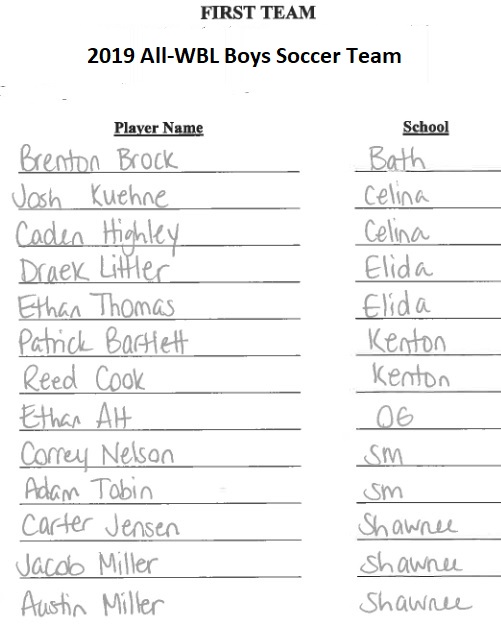 FIRST TEAM
2019 All-WBL Boys Soccer Team
Player Name School
Brenton Brock Bath
Josh Kuehne Celina
Caden Highley Celina
Draek Littler Elida
Ethan Thomas Elida
Patrick Bartlett Kenton
Reed Cook Kenton
Ethan Alt OG
Correy Nelson SM
Adam Tobin SM
Carter Jensen Shawnee
Jacob Miller Shawnee
Austin Miller Shawnee